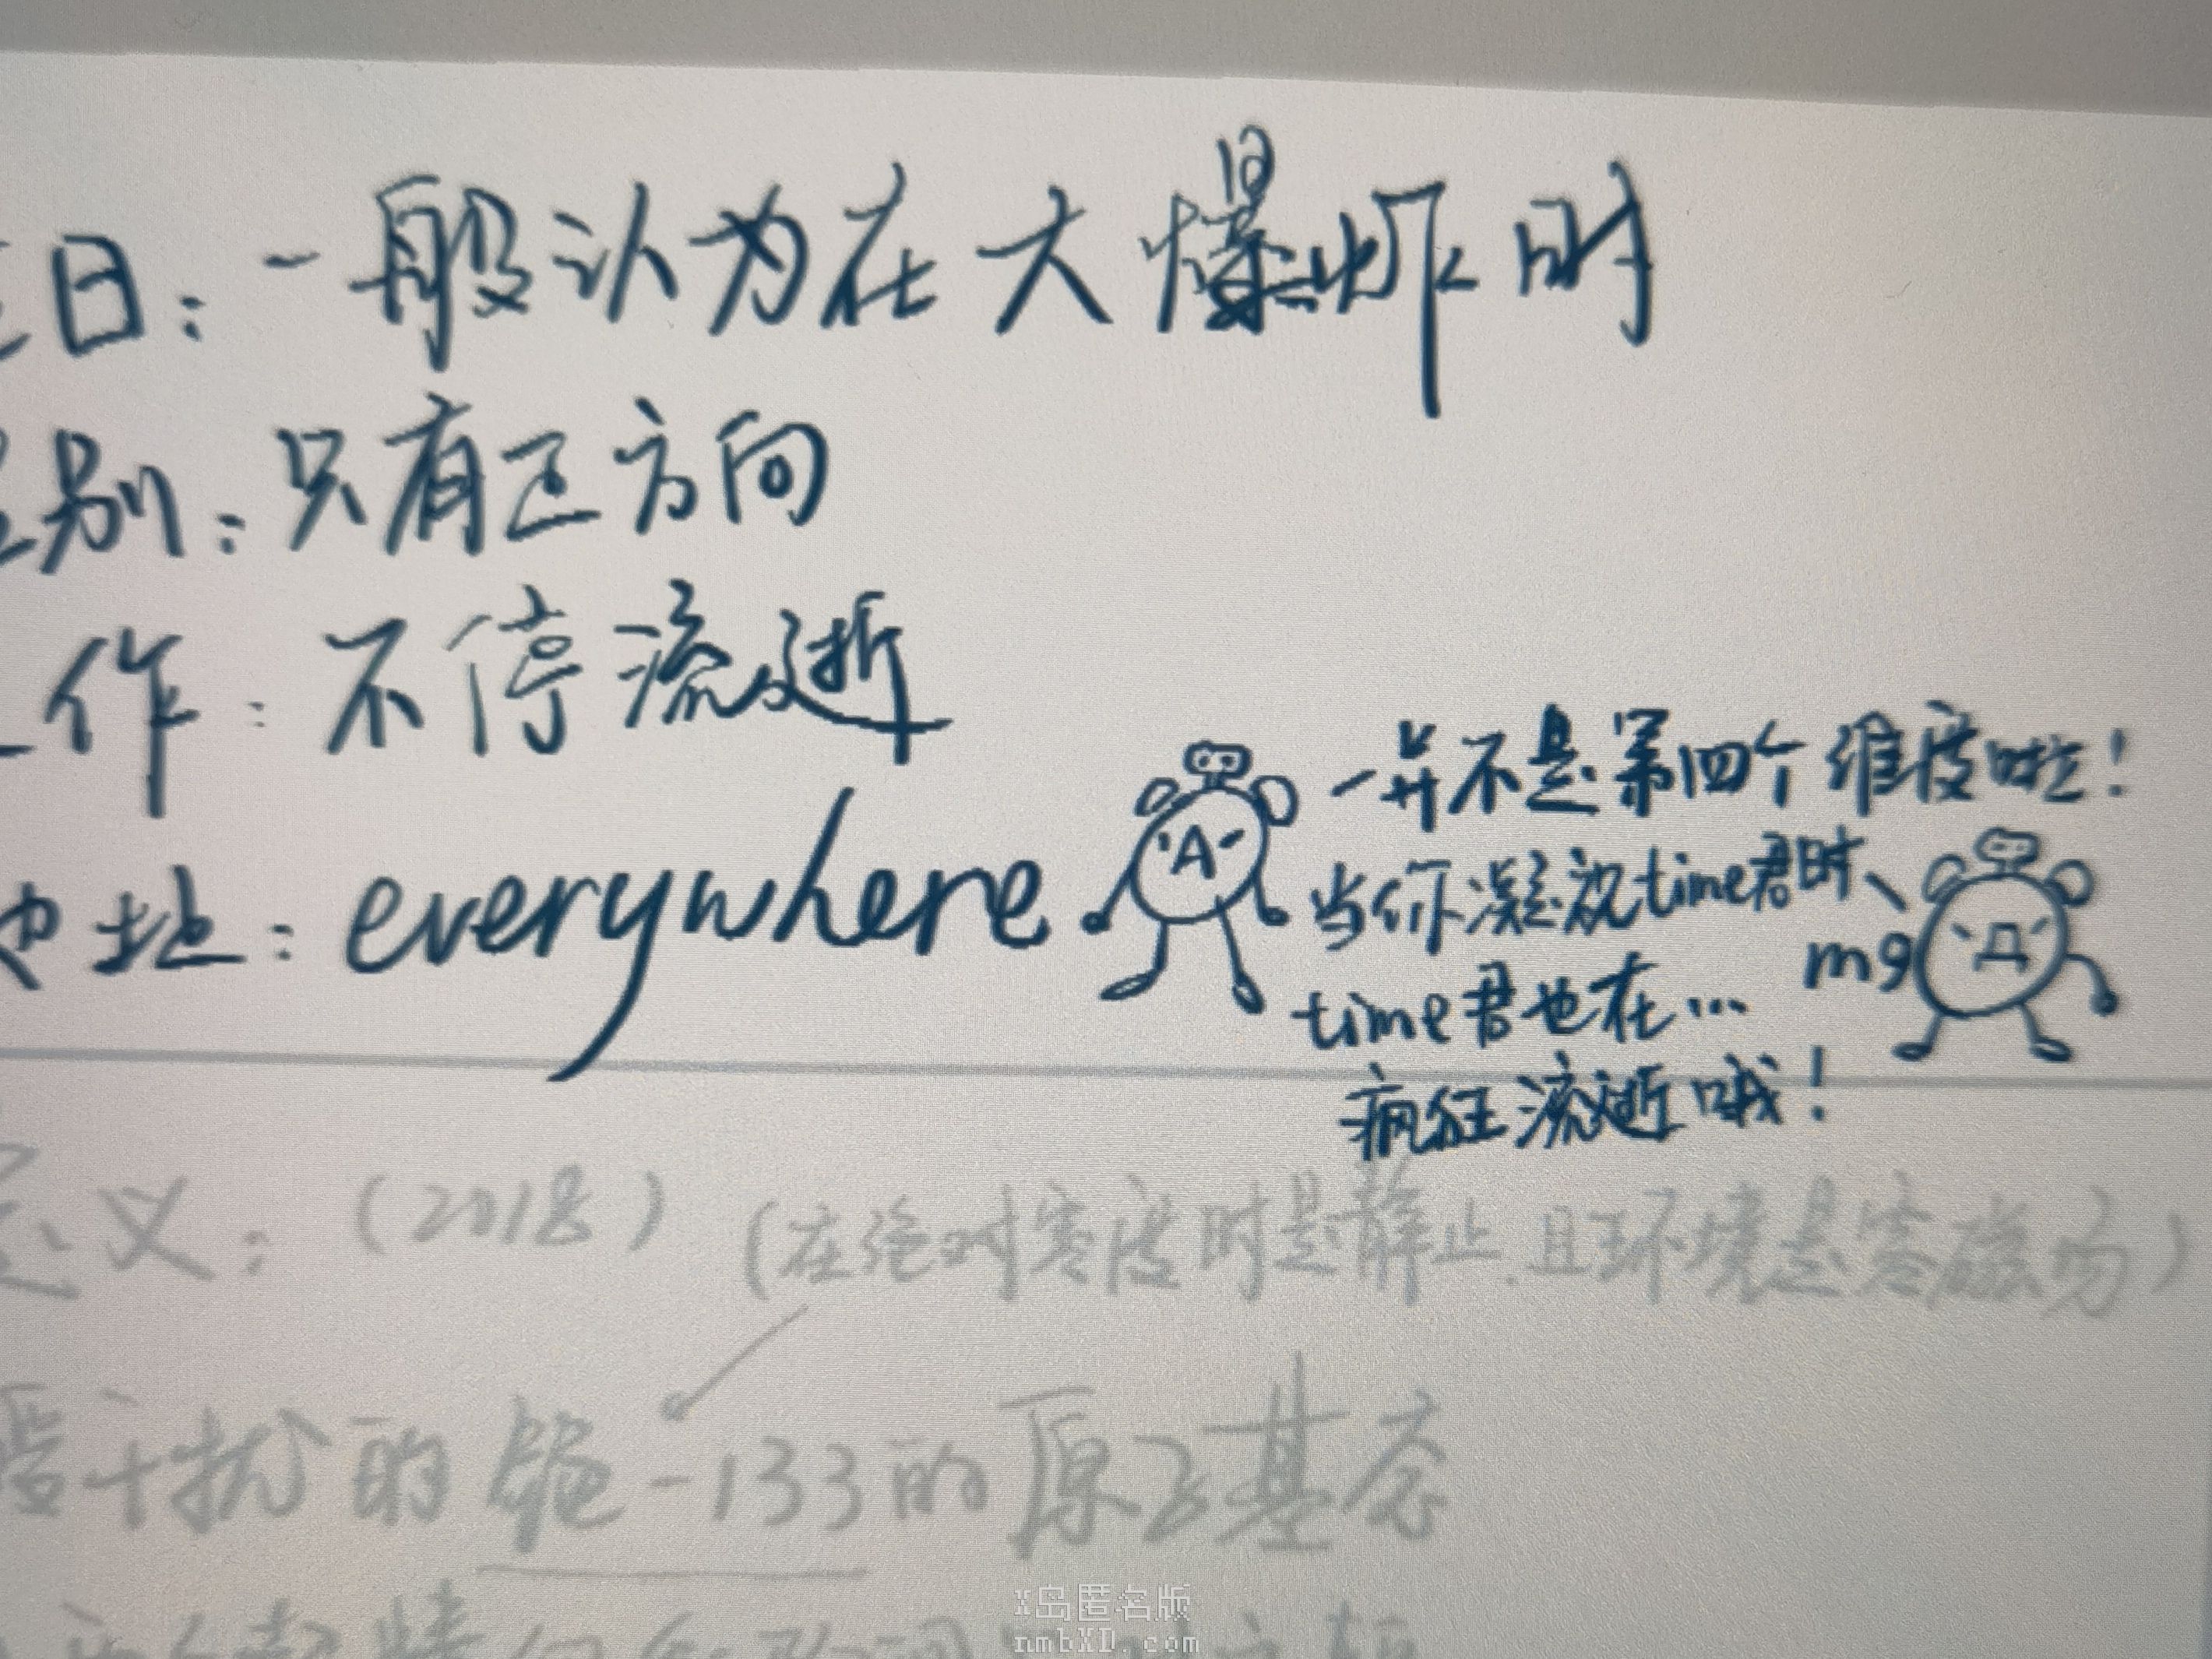 日：一般认为在大爆炸时
别：只有正方向
作：不停流逝
地：everywhere
一并不是第四个维度啦！
当你凝视time君时、
time君也在…
疯狂流逝哦！
mg
定义：（2018）
（在绝对零度时是静止，且环境是零磁场）
受干扰的铯-133的原子基态
X岛匿名版
nmbXD.com